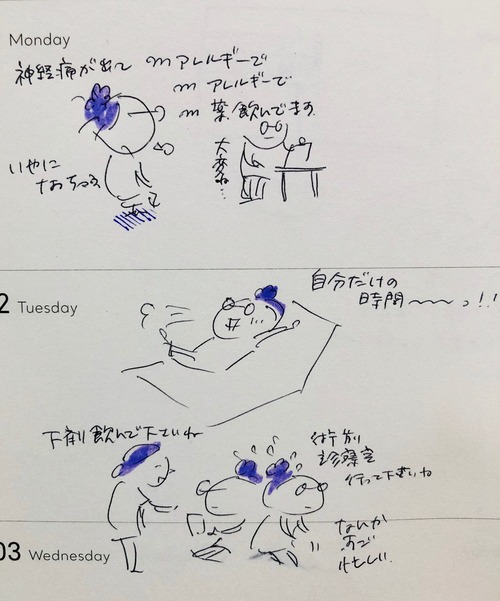 Monday
神経痛が出て
mアレルギーで
mアレルギーで
m薬飲んでます
いやに
なおちゃう
大変ね…
2 Tuesday
自分だけの
時間〜〜〜っ!!
下剤飲んで下さいね
診療室
行って下さいね
なんか
すご
忙しい
03 Wednesday